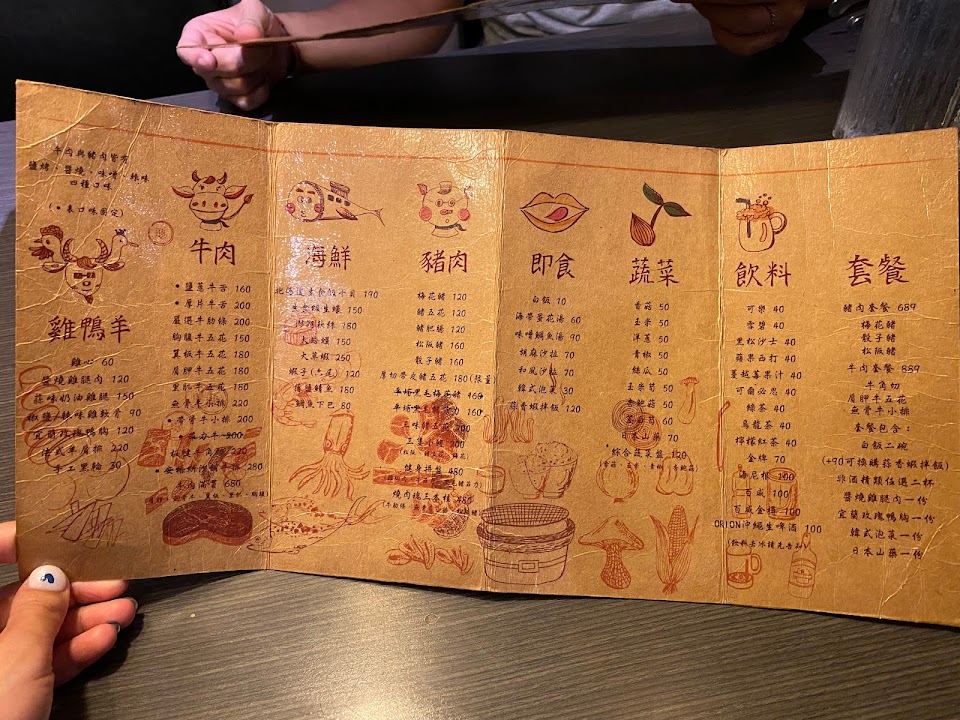 牛肉與豬肉皆有
鹽烤、醬燒、味噌、辣味
四種口味
(●表口味固定)
雞鴨羊
雞心 60
醬燒雞腿肉 120
蒜味奶油雞腿 160
椒鹽/辣味雞軟骨 90
宜蘭玫瑰鴨胸 120
法式羊肩排 220
手工黑輪 30
牛肉
●鹽蔥牛舌 160
●厚片牛舌 200
嚴選牛肋條 200
胸腹牛五花 150
翼板牛五花 180
肩胛牛五花 180
里肌牛五花 180
無骨牛小排 220
●帶骨牛小排 200
板腱牛角切 220
280
牛肉滿貫 680
海鮮
190
生食級生蠔 150
180
大蛤蠣 150
大草蝦 250
蝦子(六尾) 120
薄鹽鯖魚 180
鯛魚下巴 80
豬肉
梅花豬 120
豬五花 120
豬肥腸 120
松阪豬 160
骰子豬 160
厚切帶皮豬五花 180(限量)
三味豬五花 200
三隻小豬 200
健身拼盤 480
燒肉桃三本槍 480
即食
白飯 10
海帶蛋花湯 60
味噌鯛魚湯 90
胡麻沙拉 70
和風沙拉 70
韓式泡菜 30
蒜香蝦拌飯 120
蔬菜
香菇 50
玉米 50
洋蔥 50
青椒 50
絲瓜 50
玉米筍 50
杏鮑菇 50
50
日本山藥 70
綜合蔬菜盤 120
飲料
可樂 40
雪碧 40
黑松沙士 40
蘋果西打 40
蔓越莓果汁 40
可爾必思 40
綠茶 40
烏龍茶 40
檸檬紅茶 40
金牌 70
海尼根 100
百威 100
百威金樽 100
ORION沖繩生啤酒 100
套餐
豬肉套餐 689
梅花豬
骰子豬
松阪豬
牛肉套餐 889
牛角切
肩胛牛五花
無骨牛小排
套餐包含:
白飯二碗
(+90可換購蒜香蝦拌飯)
非酒精類任選二杯
醬燒雞腿肉一份
宜蘭玫瑰鴨胸一份
韓式泡菜一份
日本山藥一份